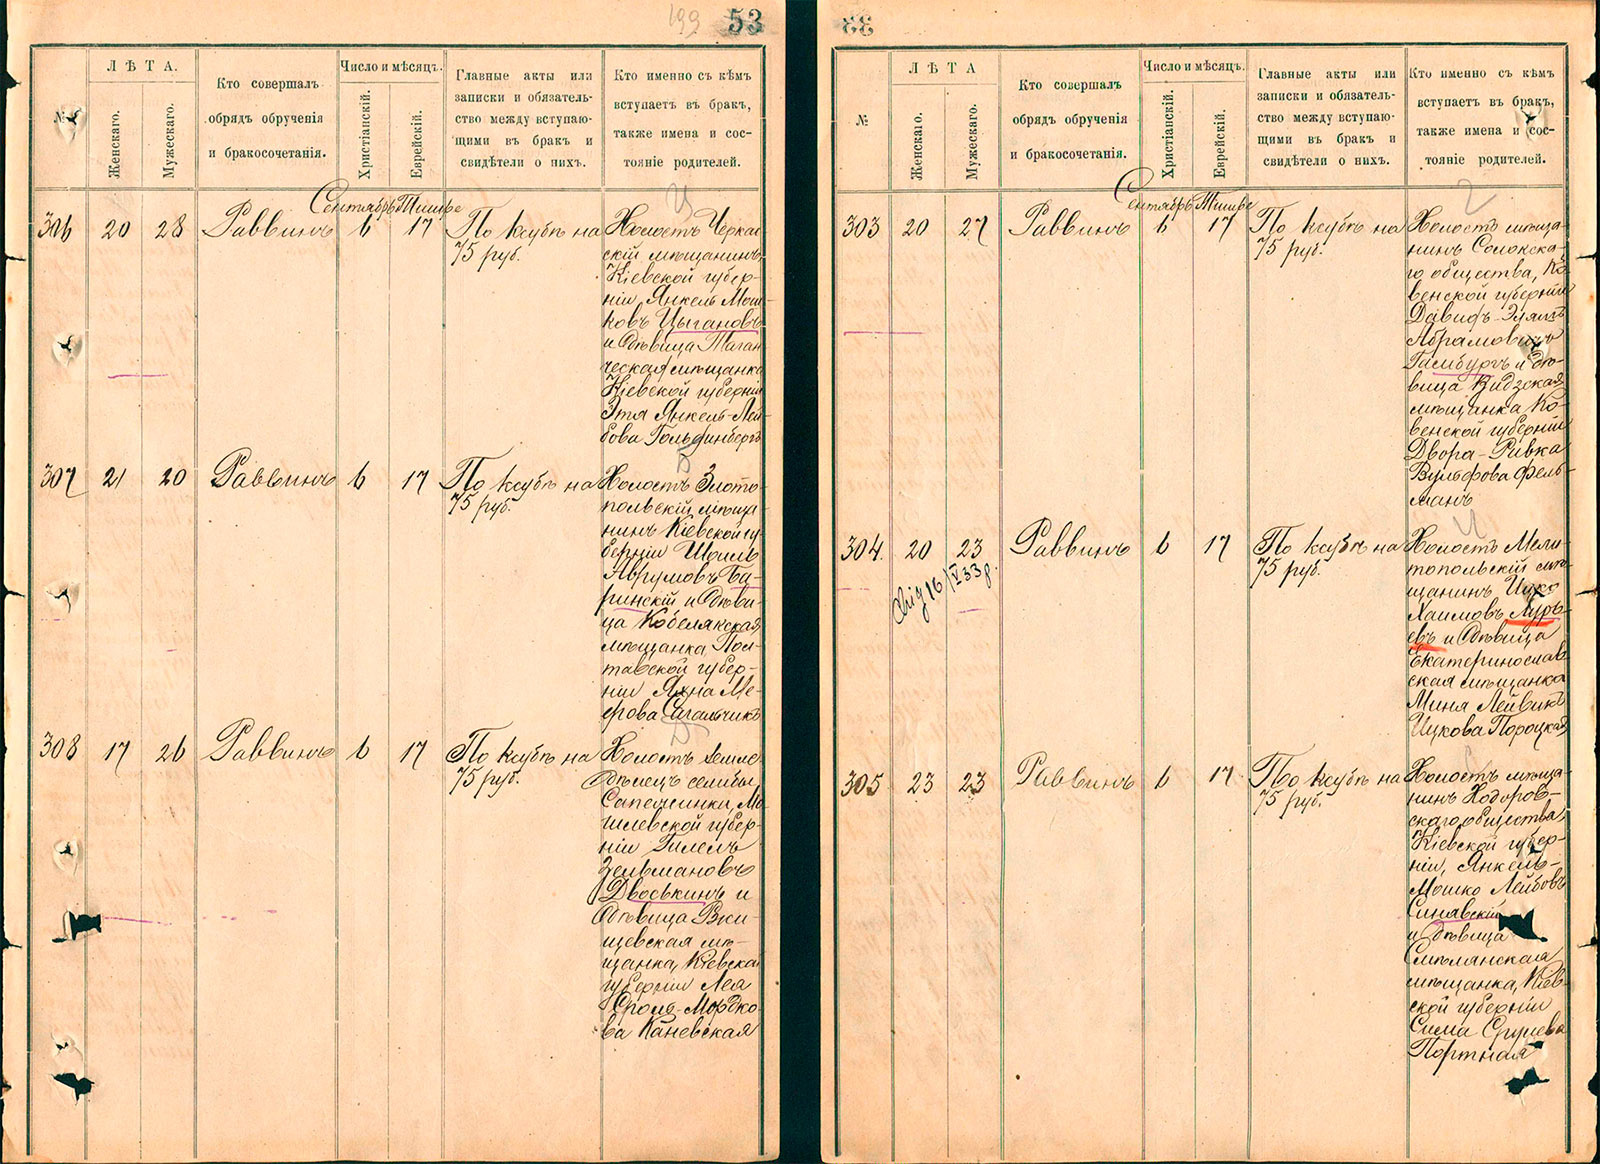 199 53
Л Ѣ Т А.
№
Женскаго.
Мужескаго.
Кто совершалъ
обрядъ обрученія
и бракосочетанія.
Число и мѣсяцъ.
Христіанскій.
Еврейскій.
Главные акты или
записки и обязатель-
ство между вступаю-
щими въ бракъ и
свидѣтели о нихъ.
Кто именно съ кѣмъ
вступаетъ въ бракъ,
также имена и сос-
тояніе родителей.
Сентябрь Тишре
306 20 28 Раввинъ 6 17 По ксубѣ на
75 руб.
Холостъ Черкас-
скій мѣщанинъ,
Кіевской губер-
ніи, Янкель Мош-
ковъ Цыгановъ
и дѣвица Таган-
ческая мѣщанка
Кіевской губерніи
Этя Янкель-Лей-
бова Гольфинбергъ
307 21 20 Раввинъ 6 17 По ксубѣ на
75 руб.
Холостъ Злото-
польскій мѣща-
нинъ Кіевской гу-
берніи Шоиль
Аврумовъ Ба-
ринскій и дѣви-
ца Кобелякская
мѣщанка Пол-
тавской губер-
ніи Яхна Ме-
ерова Сагальчикъ
308 17 26 Раввинъ 6 17 По ксубѣ на
75 руб.
Холостъ земле-
дѣлецъ
Мо-
гилевской губер-
ніи Гилель
Зельмановъ
Двоськинъ и
дѣвица Ржи-
щевская мѣ-
щанка, Кіевской
губерніи Лея
Сроль-Мордко-
ва Каневская
Л Ѣ Т А
№
Женскаго.
Мужескаго.
Кто совершалъ
обрядъ обрученія
и бракосочетанія.
Число и мѣсяцъ.
Христіанскій.
Еврейскій.
Главные акты или
записки и обязатель-
ство между вступаю-
щими въ бракъ и
свидѣтели о нихъ.
Кто именно съ кѣмъ
вступаетъ въ бракъ,
также имена и сос-
тояніе родителей.
Сентябрь Тишре
303 20 27 Раввинъ 6 17 По ксубѣ на
75 руб.
Холостъ мѣща-
нинъ Солокска-
го общества, Ко-
венской губерніи
Давидъ-Элясъ
Абрамовичъ
Гамбургъ и дѣ-
вица Видзская
мѣщанка Ко-
венской губерніи
Двора-Ривка
Вульфова Фель-
манъ
304. 20 23 Раввинъ 6 17 По ксубѣ на
75 руб.
16/V 33 р.
Холостъ Мели-
топольскій мѣ-
щанинъ Ицко
Хаимовъ Лурь-
евъ и дѣвица
Екатеринослав-
ская мѣщанка
Миня Лейвикъ
Ицкова Пороцкая
305 23 23 Раввинъ 6 17 По ксубѣ на
75 руб.
Холостъ мѣща-
нинъ Ходоров-
скаго общества,
Кіевской губер-
ніи, Янкель-
Мошко Лейбовъ
Синявскій
и дѣвица
Смѣлянская
мѣщанка, Кіев-
ской губерніи
Сима Сруліева
Портная